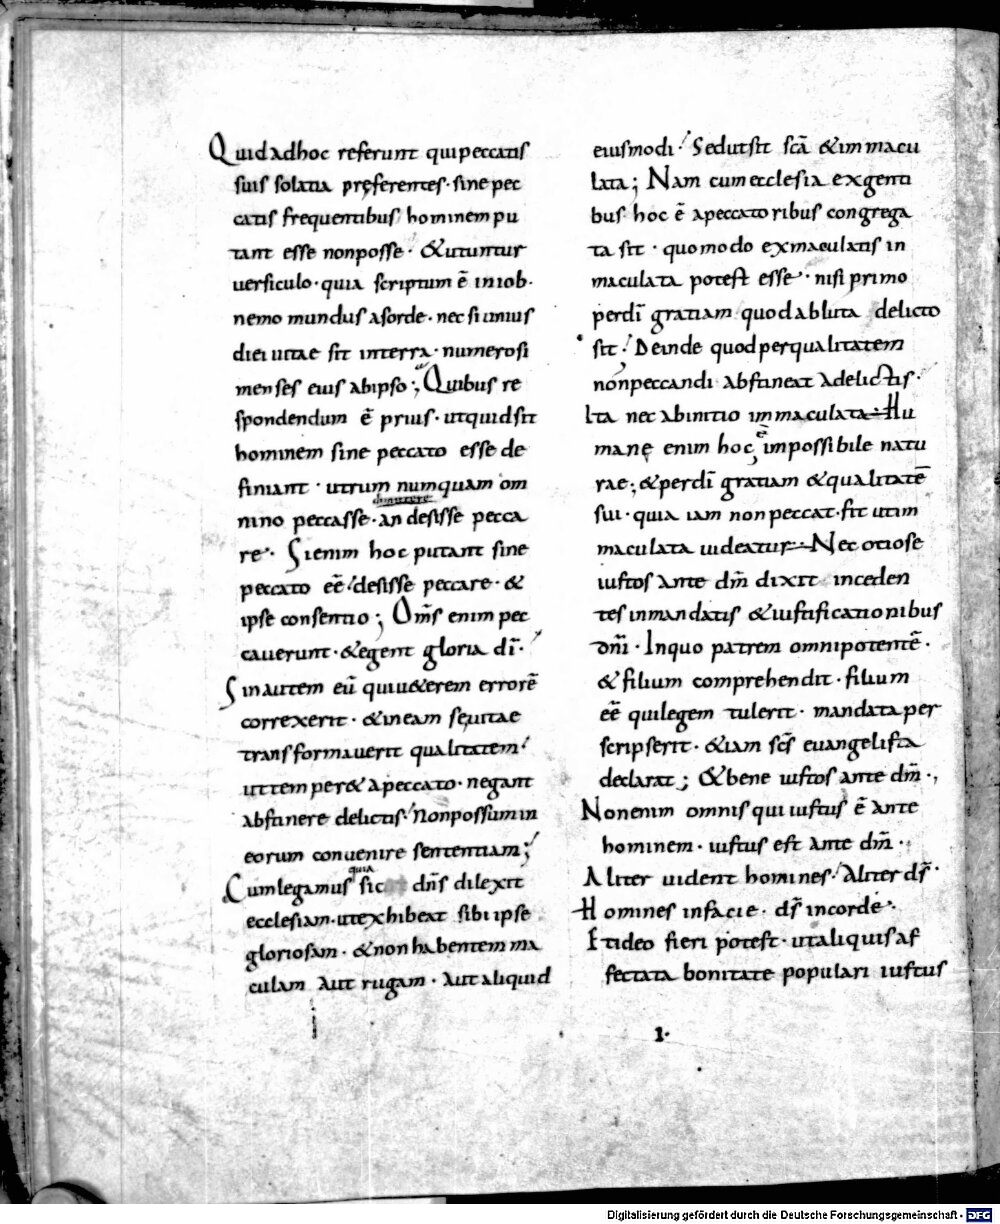 Quid adhoc referunt qui peccatis
suis solatia pręferentes · sine pec
catis frequentibus hominem pu
tant esse nonposse · & utuntur
uersiculo · quia scriptum ē iniob ·
nemo mundus asorde · nec si unius
diei uitae sit interra · numerosi
menses eius abipso ; Quibus re
spondendum ē prius · utquid sit
hominem sine peccato esse de
finiant · utrum numquam om
nino peccasse · an desisse pecca
re · Si enim hoc putant sine
peccato eē desisse peccare · &
ipse consentio ; Om̄s enim pec
cauerunt · & egent gloria dī ·
Sin autem eū qui u&erem errorē
correxerit · & in eam se uitae
transformauerit qualitatem
ut temper& apeccato · negant
abstinere delictis Non possum in
eorum conuenire sententiam ;
quia
Cum legamus sic dn̄s dilexit
ecclesiam · ut exhibeat sibi ipse
gloriosam · & non habentem ma
culam aut rugam · aut aliquid
eiusmodi Sed ut sit scā & immacu
lata ; Nam cum ecclesia exgenti
bus hoc ē apeccatoribus congrega
ta sit · quomodo exmaculatis in
maculata potest esse · nisi primo
per dī gratiam quod abluta delicto
sit Deinde quod per qualitatem
non peccandi abstineat adelictis ·
Ita nec abinitio immaculata Hu
manę enim hoc ē impossibile natu
rae ; & per dī gratiam & qualitatē
sui · quia iam non peccat · fit ut im
maculata uideatur Nec otiose
iustos ante dm̄ dixit inceden
tes in mandatis & iustificationibus
dnī · Inquo patrem omnipotentē ·
& filium comprehendit · filium
eē qui legem tulerit · mandata per
scripserit · & iam scs̄ euangelista
declarat ; & bene iustos ante dm̄ ·,
Non enim omnis qui iustus ē ante
hominem · iustus est ante dm̄ ·
Aliter uident homines Aliter ds̄ ·
Homines in facie · ds̄ in corde ·
Et ideo fieri potest · ut aliquis af
fectata bonitate populari iustus
1 ·
Digitalisierung gefördert durch die Deutsche Forschungsgemeinschaft - DFG